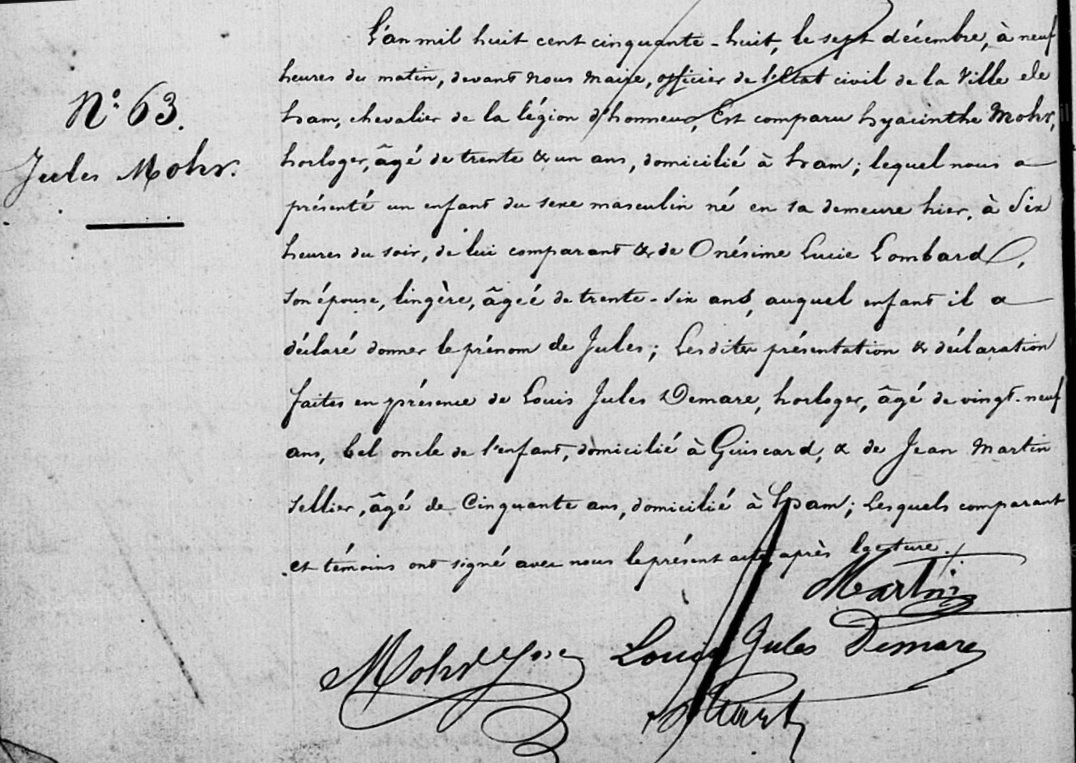 N° 63.
Jules Mohr.
L'an mil huit cent cinquante-huit, le sept décembre, à neuf
heures du matin, devant nous maire, officier de l'état civil de la Ville de
ham, chevalier de la légion d'honneur, Est comparu hyacinthe Mohr,
horloger, âgé de trente & un ans, domicilié à ham; lequel nous a
présenté un enfant du sexe masculin né en sa demeure hier, à Six
heures du soir, de lui comparant & de Onésime Lucie Lombard,
son épouse, lingère, âgée de trente-six ans, auquel enfant il a
déclaré donner le prénom de Jules; Lesdites présentation & déclaration
faites en présence de Louis Jules Demare, horloger, âgé de vingt-neuf
ans, bel oncle de l'enfant, domicilié à Guiscard, & de Jean Martin
sellier, âgé de Cinquante ans, domicilié à ham; Lesquels comparant
et témoins ont signé avec nous le présent acte après lecture./.
Martin
Mohr Louis Jules Demare